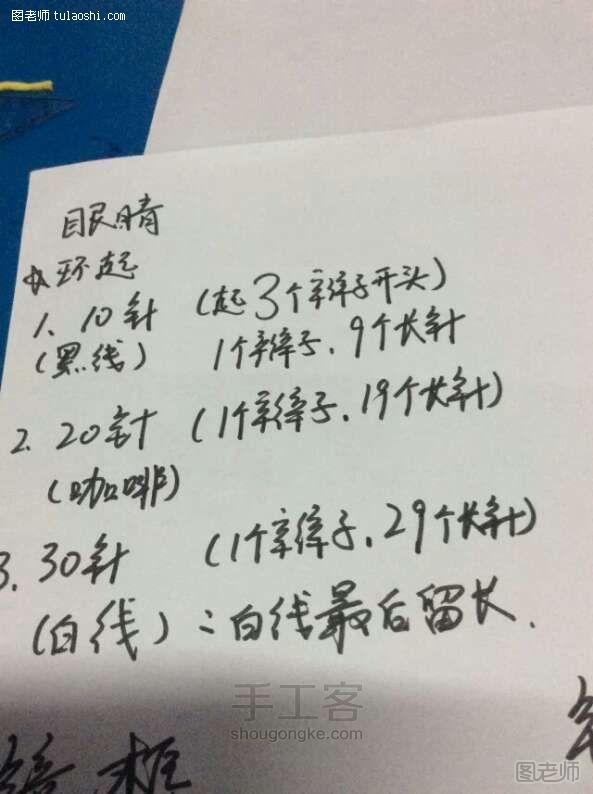 图老师 tulaoshi.com
眼睛
环起
1. 10针 (起3个辫子开头)
(黑线) 1个辫子. 9个长针
2. 20针 (1个辫子. 19个长针)
(咖啡)
3. 30针 (1个辫子. 29个长针)
(白线): 白线最后留长.
手工客
shougongke.com
框
图老师